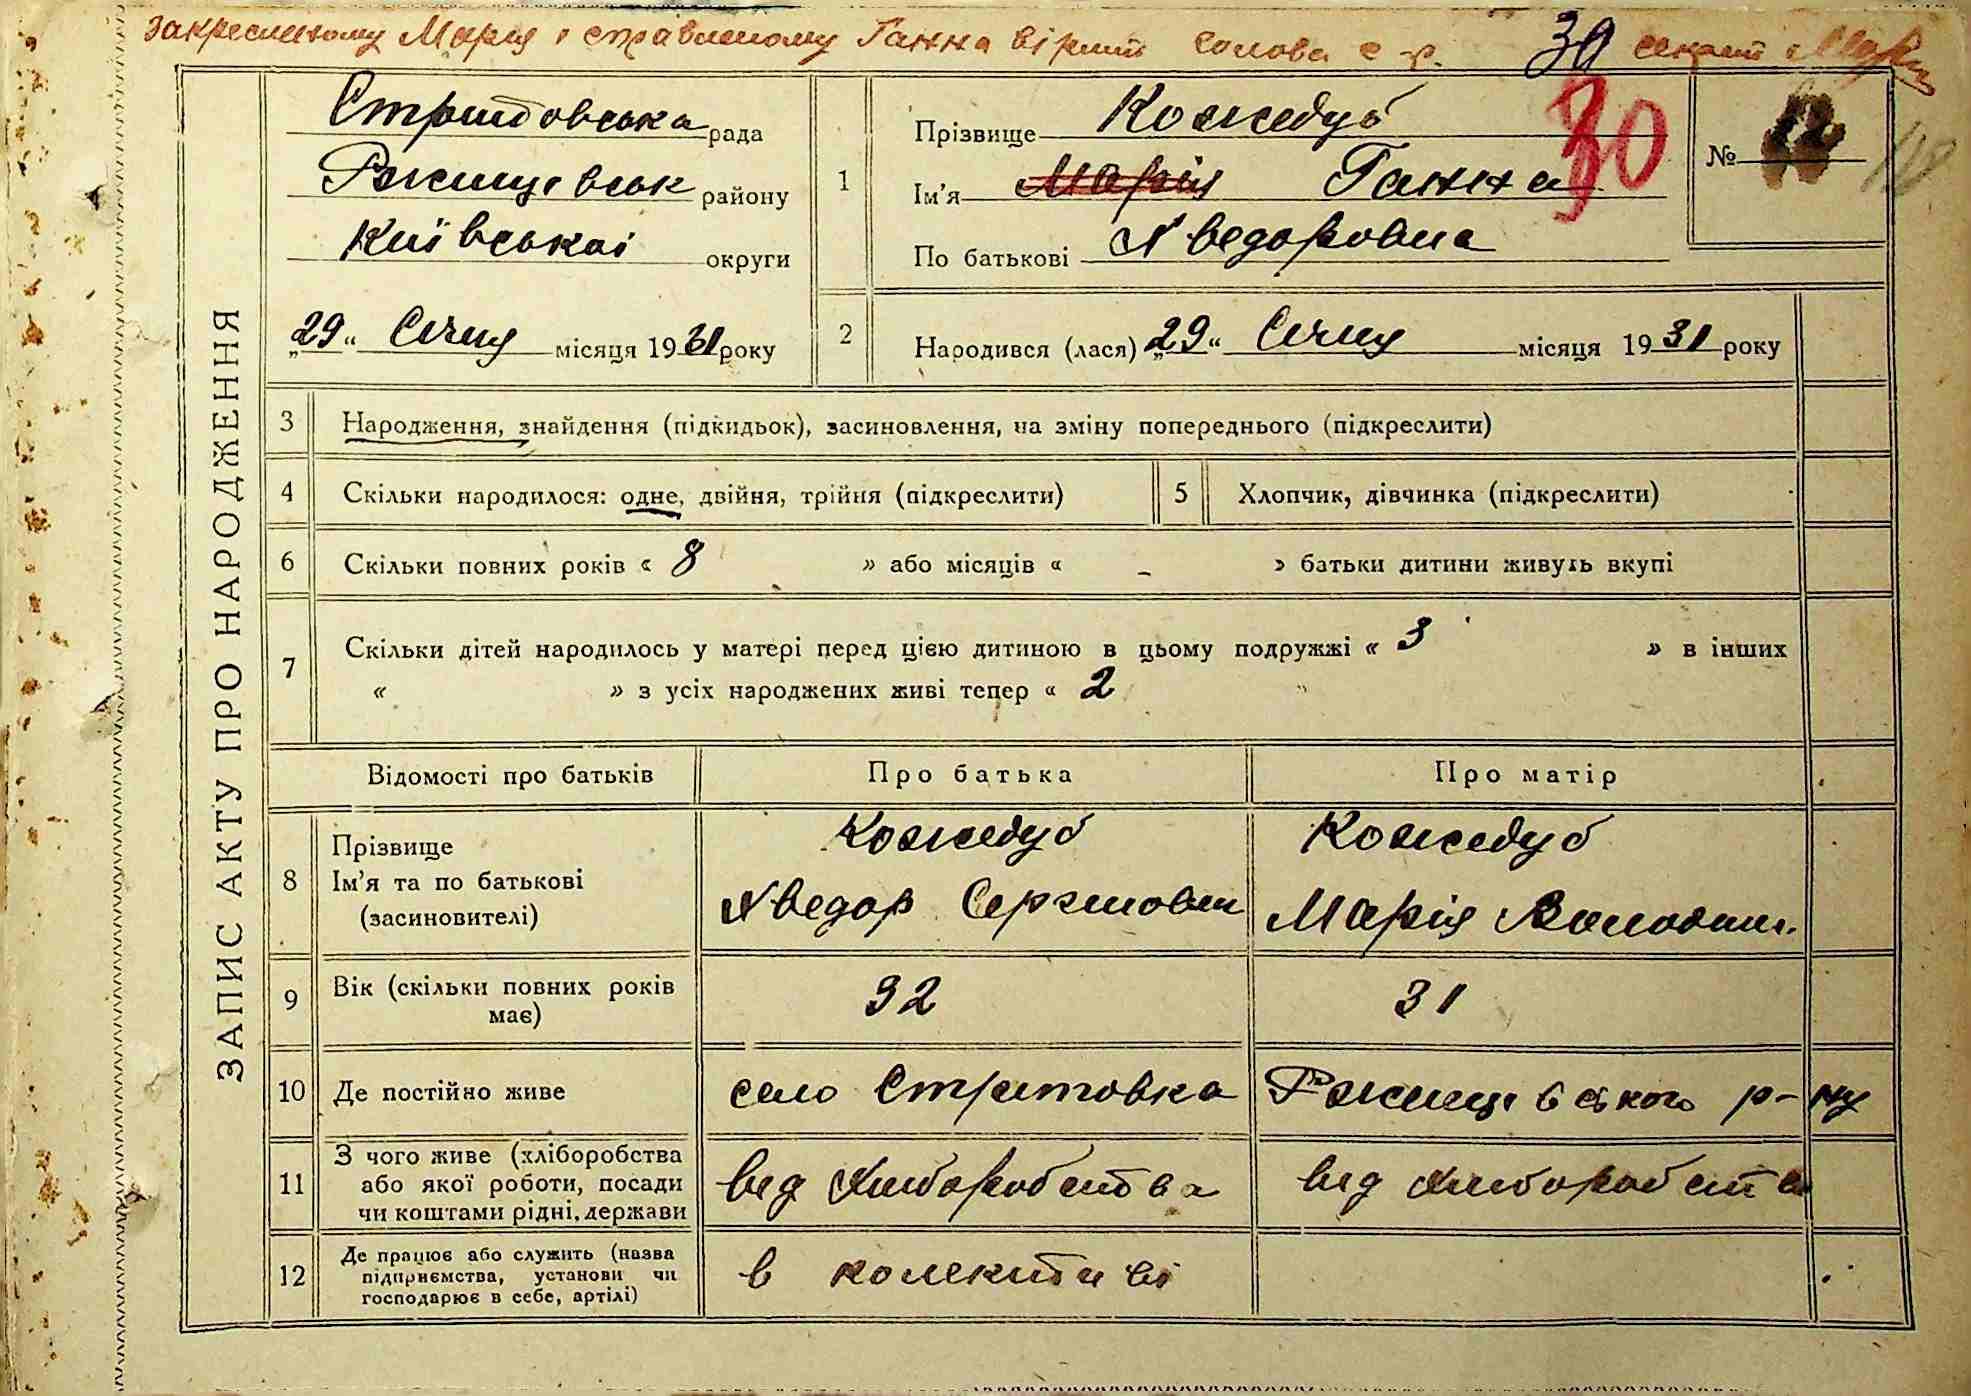 закресленому Марія і справленому Ганна вірити голова с-р. 30 секрет
30
ЗАПИС АКТУ ПРО НАРОДЖЕННЯ
Стритовська рада
Ржищевськ району
Київської округи
„29“ Січня місяця 1931 року
1
Прізвище Кожедуб
Ім’я Марія Ганна
По батькові Хведоровна
№
2
Народився (лася) „29“ Січня місяця 1931 року
3 Народження, знайдення (підкидьок), засиновлення, на зміну попереднього (підкреслити)
4 Скільки народилося: одне, двійня, трійня (підкреслити) 5 Хлопчик, дівчинка (підкреслити)
6 Скільки повних років « 8 » або місяців « – » батьки дитини живуть вкупі
7 Скільки дітей народилось у матері перед цією дитиною в цьому подружжі « 3 » в інших
« » з усіх народжених живі тепер « 2 "
Відомості про батьків Про батька Про матір
8 Прізвище Кожедуб Кожедуб
Ім’я та по батькові Хведор Сергійович Марія Володим.
(засиновителі)
9 Вік (скільки повних років має) 32 31
10 Де постійно живе село Стритовка Ржищевського р-ну
11 З чого живе (хліборобства
або якої роботи, посади від хліборобства від хліборобства
чи коштами рідні, держави
12 Де працює або служить (назва
підприємства, установи чи в колективі
господарює в себе, артілі)